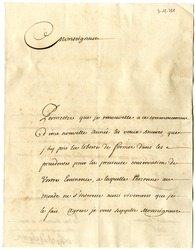 Monseigneur
Permettez que je renouvelle a ce commencement
d'une nouvelle année les vœux sinceres que
j'ay pris la liberté de former dans les
pour la precieuse conservation de
Votre Eminence, a laquelle Personne au
monde ne s'interesse aussi vivement que je
le fais. je vous supplie Monseigneur